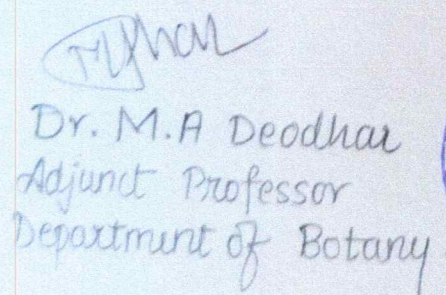 Dr. M.A Deodhar
Adjunct Professor
Department of Botany